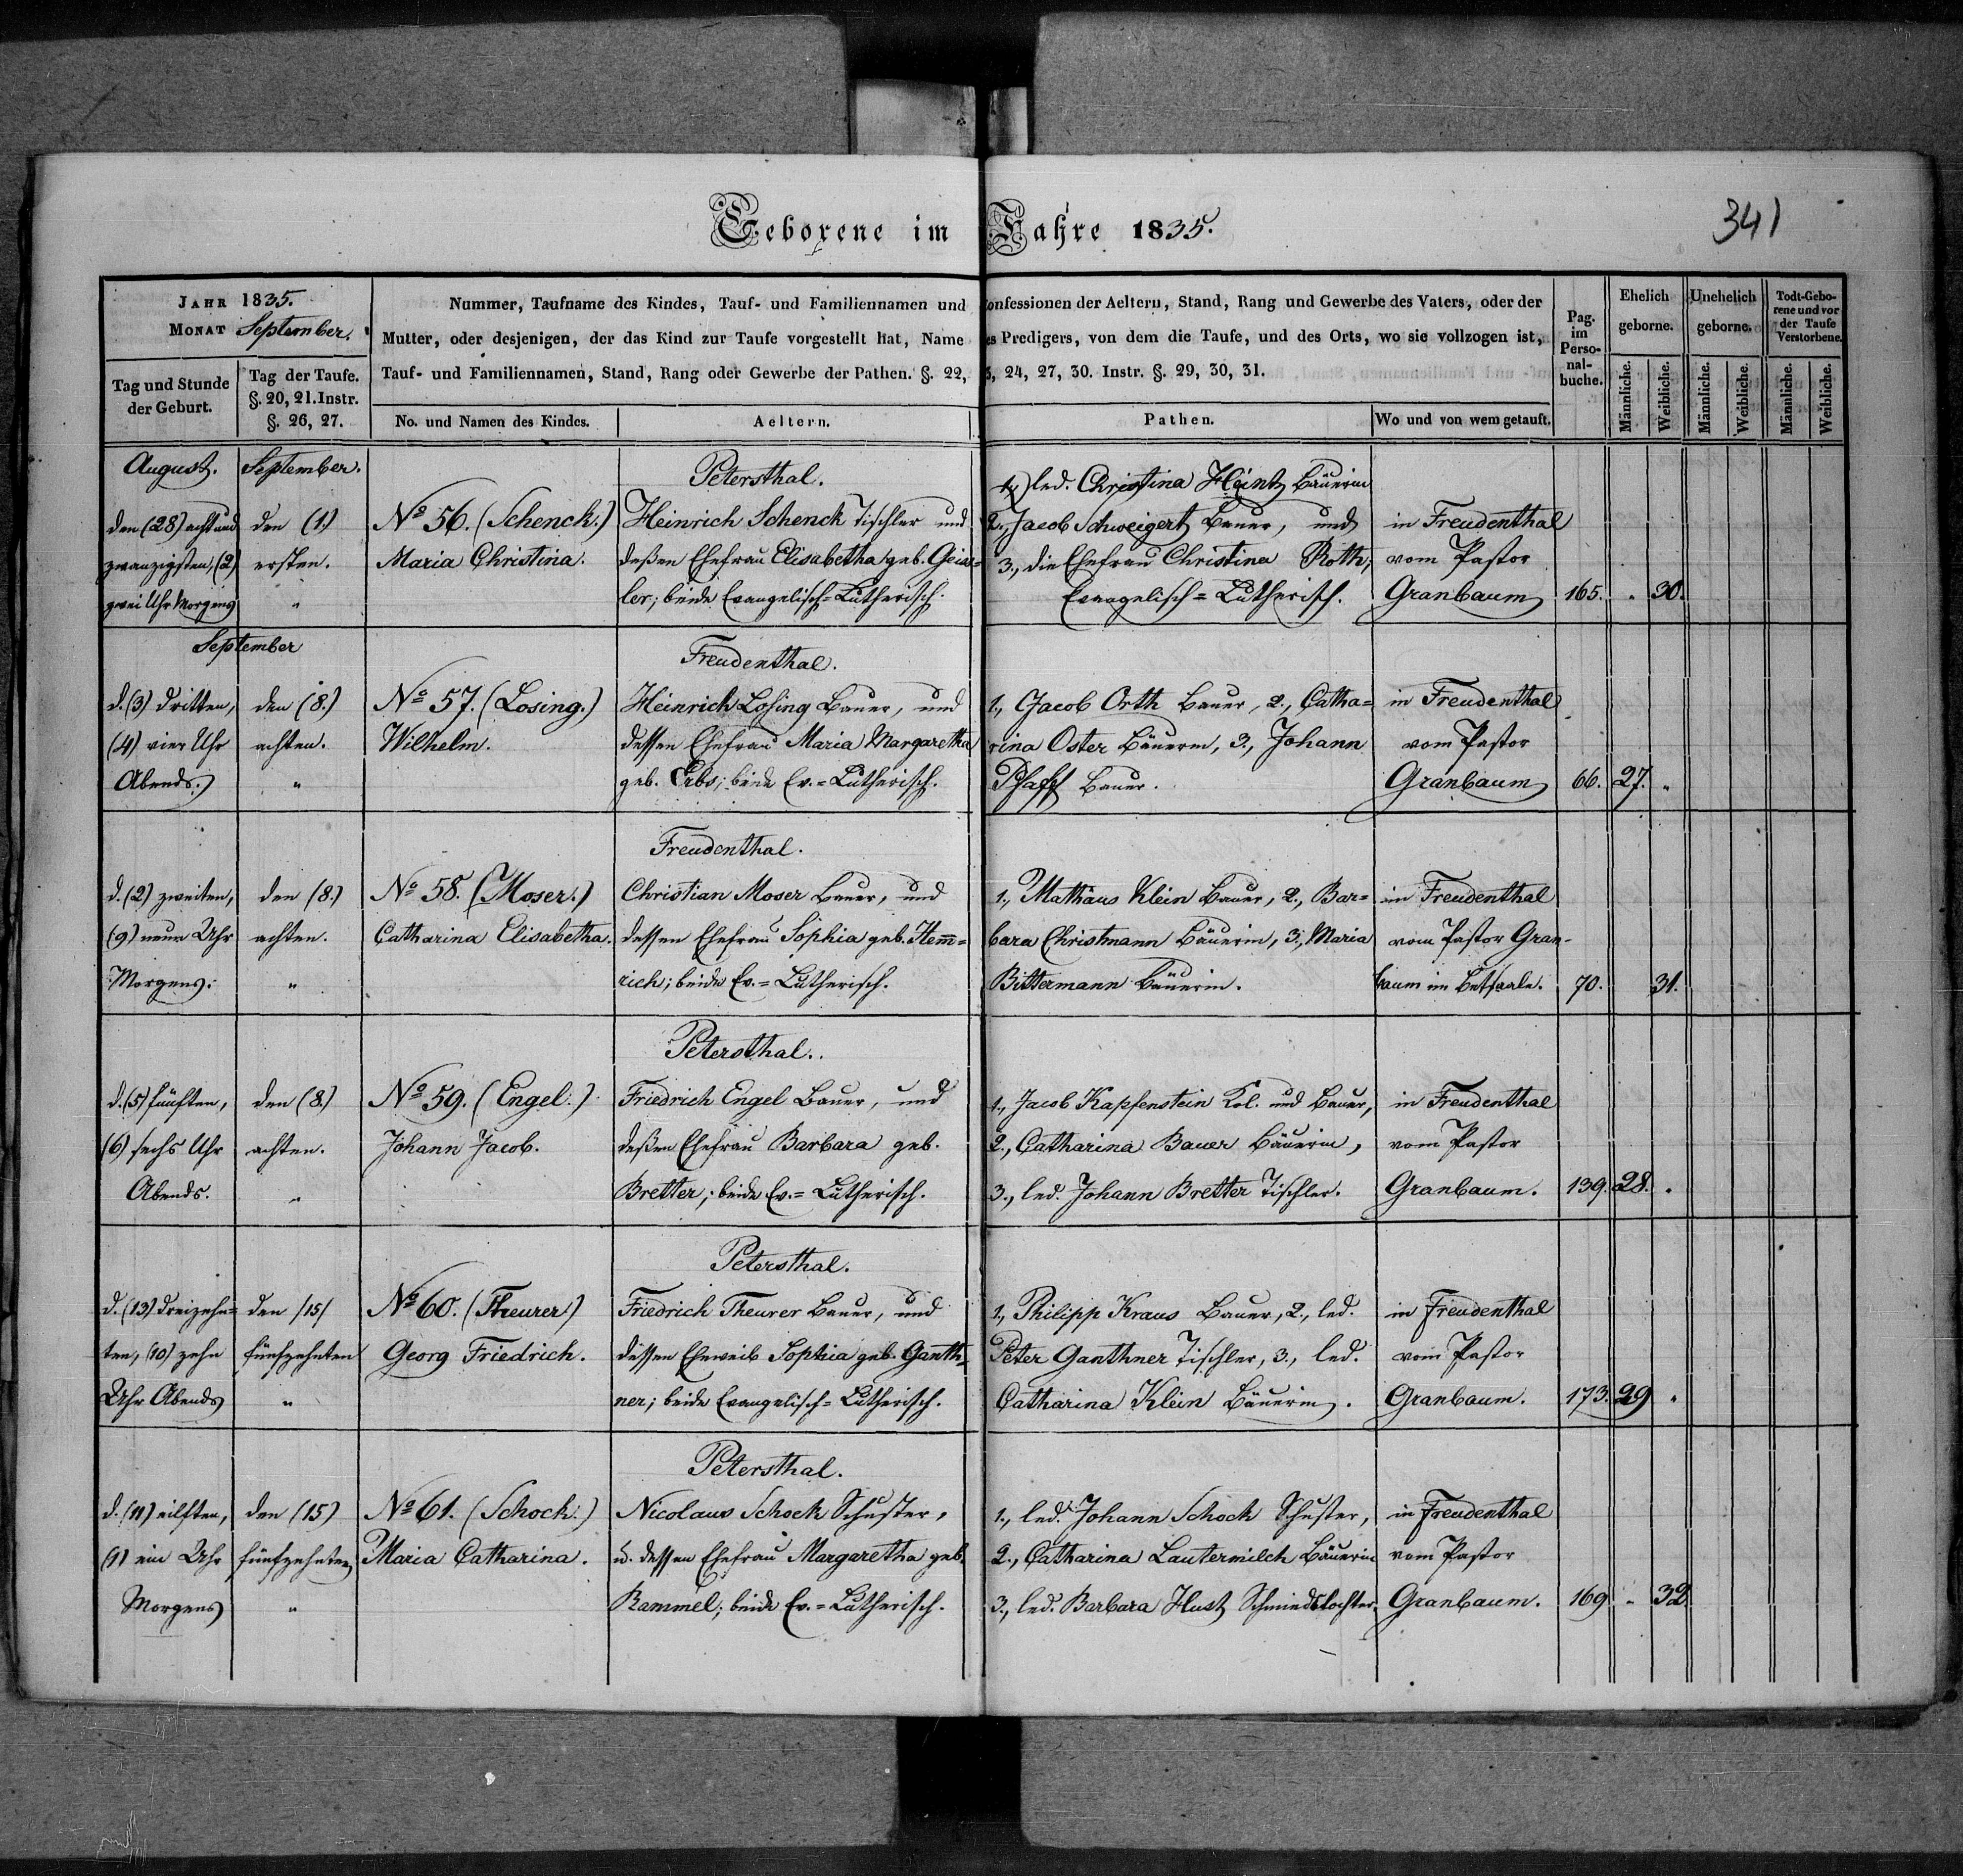 Geborene im Jahre 1835.
341
JAHR 1835.
MONAT September.
Tag und Stunde der Geburt.
Tag der Taufe. §. 20, 21. Instr. §. 26, 27.
Nummer, Taufname des Kindes, Tauf- und Familiennamen und Confessionen der Aeltern, Stand, Rang und Gewerbe des Vaters, oder der
Mutter, oder desjenigen, der das Kind zur Taufe vorgestellt hat, Name des Predigers, von dem die Taufe, und des Orts, wo sie vollzogen ist,
Tauf- und Familiennamen, Stand, Rang oder Gewerbe der Pathen. §. 22, 23, 24, 27, 30. Instr. §. 29, 30, 31.
No. und Namen des Kindes.
Aeltern.
Pathen.
Wo und von wem getauft.
Pag. im Perso-nal-buche.
Ehelich geborne.
Unehelich geborne.
Todt-Gebo-rene und vor der Taufe Verstorbene.
Männliche. Weibliche. Männliche. Weibliche. Männliche. Weibliche.
August.
den (28) acht und
zwanzigsten, (2)
zwei Uhr Morgens
September.
den (1.)
ersten.
"
No 56. (Schenck.)
Maria Christina.
Petersthal.
Heinrich Schenck Tischler und
deßen Ehefrau Elisabetha geb. Geiss=
ler; beide Evangelisch=Lutherisch.
1,) led. Christina Heintz Bäuerin
2., Jacob Schweigert Bauer, und
3., die Ehefrau Christina Roth;
Evangelisch=Lutherisch.
in Freudenthal
vom Pastor
Granbaum
165. " 30.
September
d. (3) dritten,
(4) vier Uhr
Abends.
den (8.)
achten.
"
No 57. (Losing.)
Wilhelm.
Freudenthal.
Heinrich Losing Bauer, und
dessen Ehefrau Maria Margaretha
geb. Erbs; beide Ev.=Lutherisch.
1., Jacob Orth Bauer, 2., Catha=
rina Oster Bäuerin, 3., Johann
Pfaff Bauer.
in Freudenthal
vom Pastor
Granbaum
66. 27. "
d. (2) zweiten,
(9) neun Uhr
Morgens.
den (8.)
achten.
"
No 58. (Moser.)
Catharina Elisabetha.
Freudenthal.
Christian Moser Bauer, und
dessen Ehefrau Sophia geb. Hem̅=
rich; beide Ev.=Lutherisch.
1., Mathäus Klein Bauer, 2., Bar=
bara Christmann Bäuerin, 3., Maria
Bittermann Bäuerin.
in Freudenthal
vom Pastor Gran-
baum im Betsaale.
70. 31.
d. (5) fünften,
(6) sechs Uhr
Abends.
den (8.)
achten.
"
No 59. (Engel.)
Johann Jacob.
Petersthal.
Friedrich Engel Bauer, und
deßen Ehefrau Barbara geb.
Bretter; beide Ev.=Lutherisch.
1., Jacob Kapfenstein Kol. und Bauer,
2., Catharina Bauer Bäuerin,
3., led. Johann Bretter Tischler.
in Freudenthal
vom Pastor
Granbaum.
139. 28. "
d. (13) dreizehn=
ten, (10) zehn
Uhr Abends
den (15)
fünfzehnten
"
No 60. (Theurer)
Georg Friedrich.
Petersthal.
Friedrich Theurer Bauer, und
dessen Eheweib Sophia geb. Ganth=
ner; beide Evangelisch=Lutherisch.
1., Philipp Kraus Bauer, 2., led.
Peter Ganthner Tischler, 3., led.
Catharina Klein Bäuerin.
in Freudenthal
vom Pastor
Granbaum.
173. 29 "
d. (11) eilften,
(1) ein Uhr
Morgens
den (15)
fünfzehnten
"
No 61. (Schock.)
Maria Catharina.
Petersthal.
Nicolaus Schock Schuster,
u. dessen Ehefrau Margaretha geb.
Rammel; beide Ev.=Lutherisch.
1., led. Johann Schock Schuster,
2., Catharina Lautermilch Bäuerin
3., led. Barbara Hust Schmiedstochter.
in Freudenthal
vom Pastor
Granbaum.
169 " 32